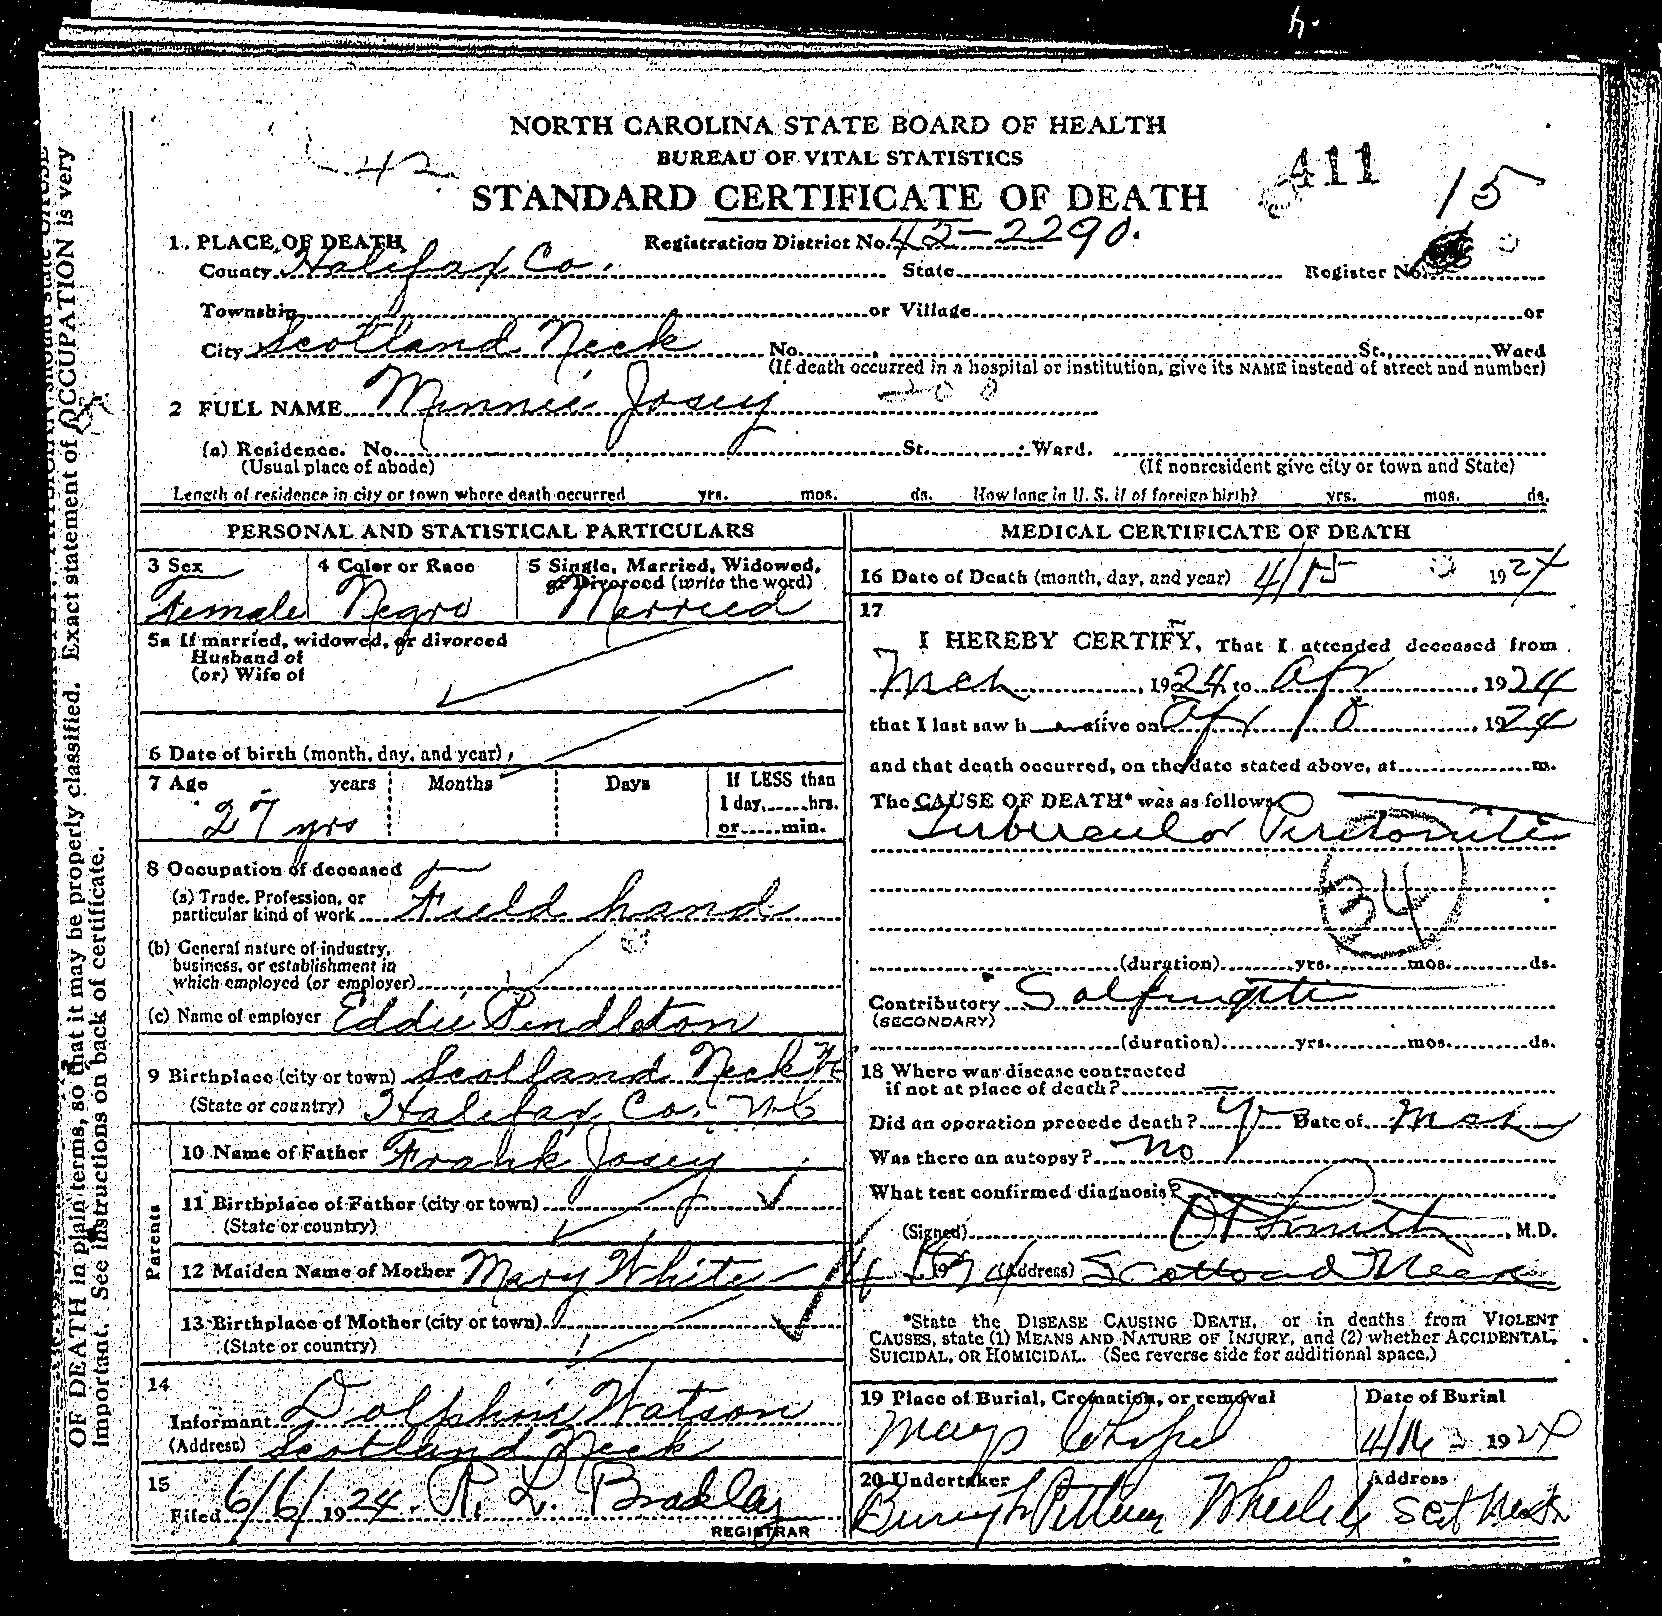 4.
NORTH CAROLINA STATE BOARD OF HEALTH
BUREAU OF VITAL STATISTICS
42
411
STANDARD CERTIFICATE OF DEATH
15
1. PLACE OF DEATH
Registration District No. 42-2290.
County Halifax Co. State Register No.
Township or Village or
City Scotland Neck No. St., Ward
(If death occurred in a hospital or institution, give its NAME instead of street and number)
2 FULL NAME Minnie Josey
(a) Residence. No. St. Ward.
(Usual place of abode) (If nonresident give city or town and State)
Length of residence in city or town where death occurred yrs. mos. ds. How long in U. S. if of foreign birth? yrs. mos. ds.
PERSONAL AND STATISTICAL PARTICULARS
3 Sex 4 Color or Race 5 Single, Married, Widowed,
or Divorced (write the word)
Female Negro Married
5a If married, widowed, or divorced
Husband of
(or) Wife of
6 Date of birth (month, day, and year)
7 Age years Months Days If LESS than
1 day, hrs.
27 yrs or min.
8 Occupation of deceased
(a) Trade, Profession, or
particular kind of work Field hand
(b) General nature of industry,
business, or establishment in
which employed (or employer)
(c) Name of employer Eddie Pendleton
9 Birthplace (city or town) Scotland Neck N
(State or country) Halifax Co. NC
Parents
10 Name of Father Frank Josey
11 Birthplace of Father (city or town)
(State or country)
12 Maiden Name of Mother Mary White
13 Birthplace of Mother (city or town)
(State or country)
14
Informant Dolphin Watson
(Address) Scotland Neck
15
Filed 6/6/1924. R. L. Bradley
REGISTRAR
MEDICAL CERTIFICATE OF DEATH
16 Date of Death (month, day, and year) 4/15 1924
17
I HEREBY CERTIFY, That I attended deceased from
Mch, 1924 to Apr, 1924
that I last saw h alive on Apr 10, 1924
and that death occurred, on the date stated above, at m.
The CAUSE OF DEATH* was as follows:
Tubercular Peritonitis
34
(duration) yrs. mos. ds.
Contributory Salpingitis
(SECONDARY)
(duration) yrs. mos. ds.
18 Where was disease contracted
if not at place of death?
Did an operation precede death? Y Date of Mch
Was there an autopsy? No
What test confirmed diagnosis?
(Signed) Smith, M.D.
4 15 1924 (Address) Scotland Neck
*State the DISEASE CAUSING DEATH, or in deaths from VIOLENT
CAUSES, state (1) MEANS AND NATURE OF INJURY, and (2) whether ACCIDENTAL,
SUICIDAL, OR HOMICIDAL. (See reverse side for additional space.)
19 Place of Burial, Cremation, or removal Date of Burial
Marys Chapel 4/16 1924
20 Undertaker Address
Wheeler
OF DEATH in plain terms, so that it may be properly classified. Exact statement of OCCUPATION is very
important. See instructions on back of certificate.